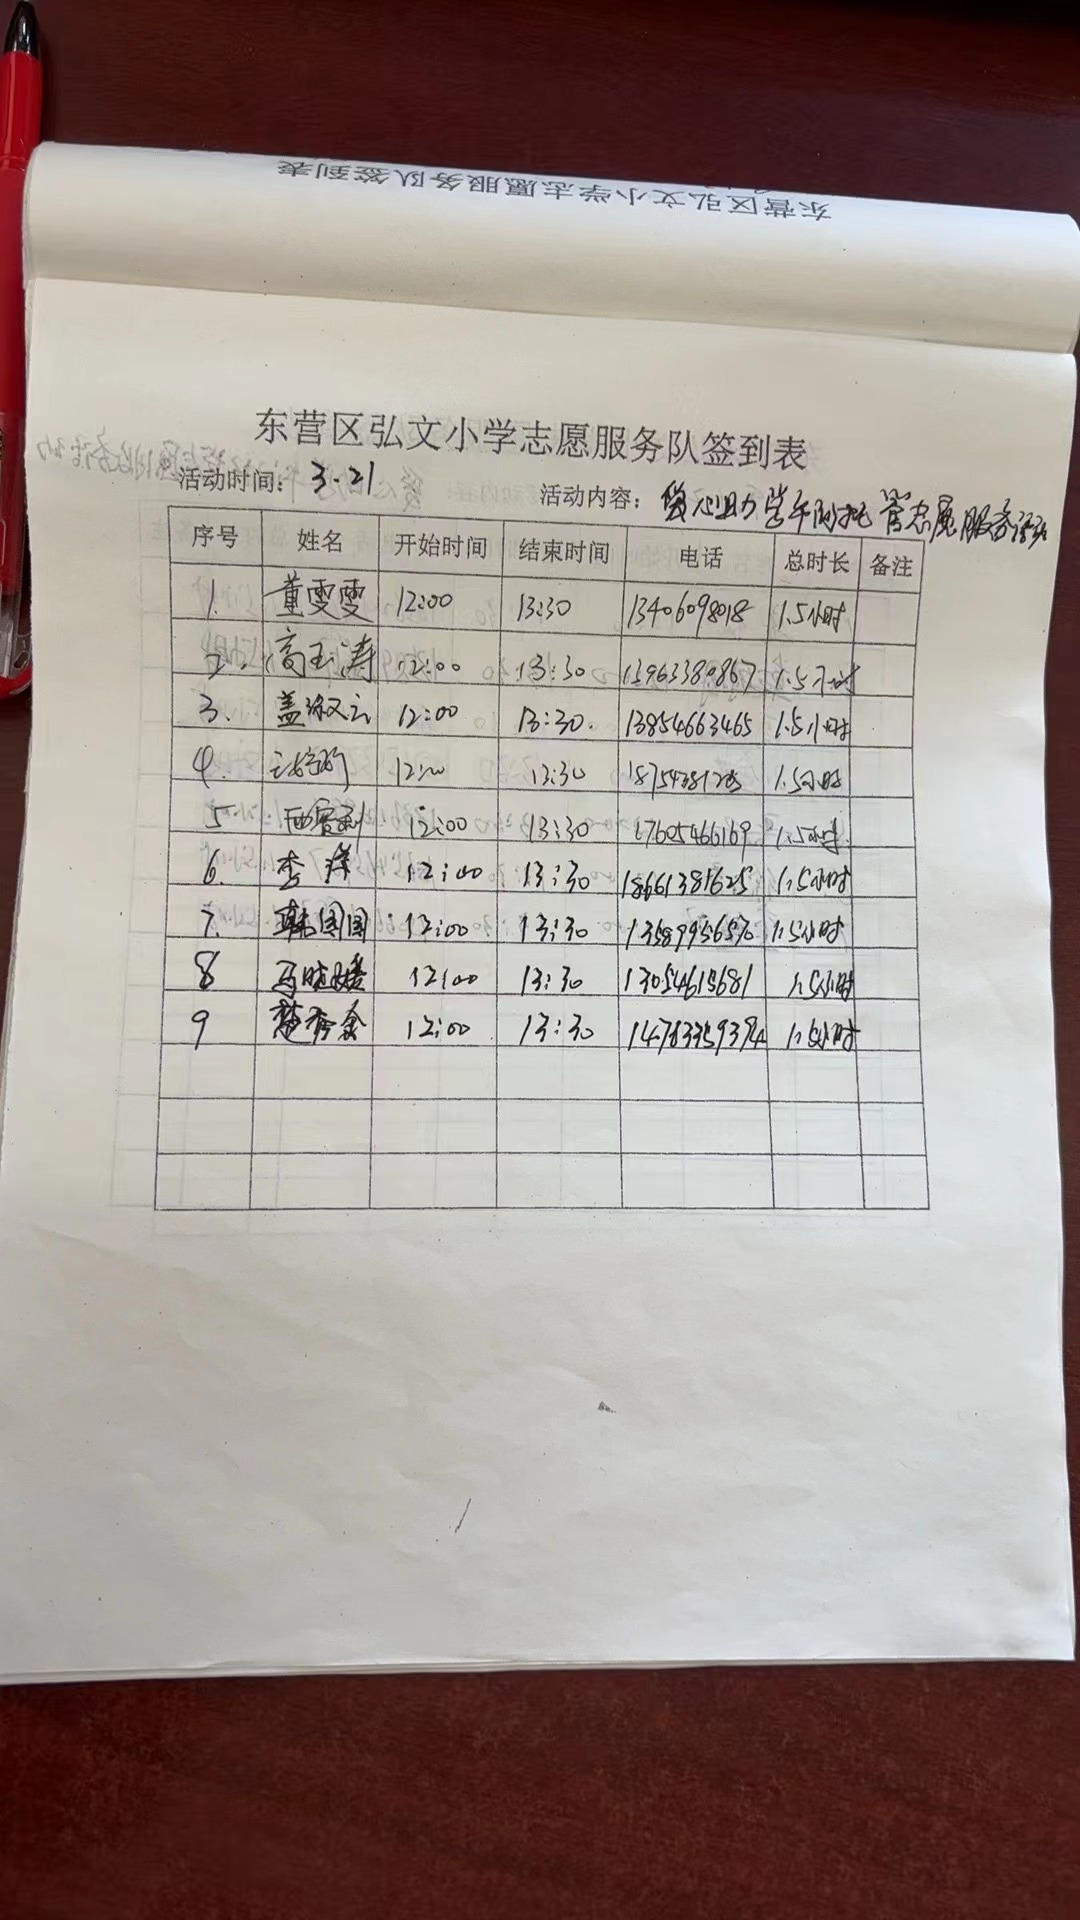 东营区弘文小学志愿服务队签到表
东营区弘文小学志愿服务队签到表
活动时间：3.21 活动内容：爱心助学午间托管志愿服务活动
序号 姓名 开始时间 结束时间 电话 总时长 备注
1. 董雯雯 12:00 13:30 13406098018 1.5小时
2. 高玉涛 12:00 13:30 13963380867 1.5小时
3. 盖 12:00 13:30. 13854663465 1.5小时
4. 12:00 13:30 1.5小时
5 12:00 13:30 17605466169 1.5小时
6. 李洋 12:00 13:30 18661381625 1.5小时
7. 韩圆圆 12:00 13:30 13589956570 1.5小时
8 马 12:00 13:30 13054615681 1.5小时
9 楚秀金 12:00 13:30 14783359394 1.5小时